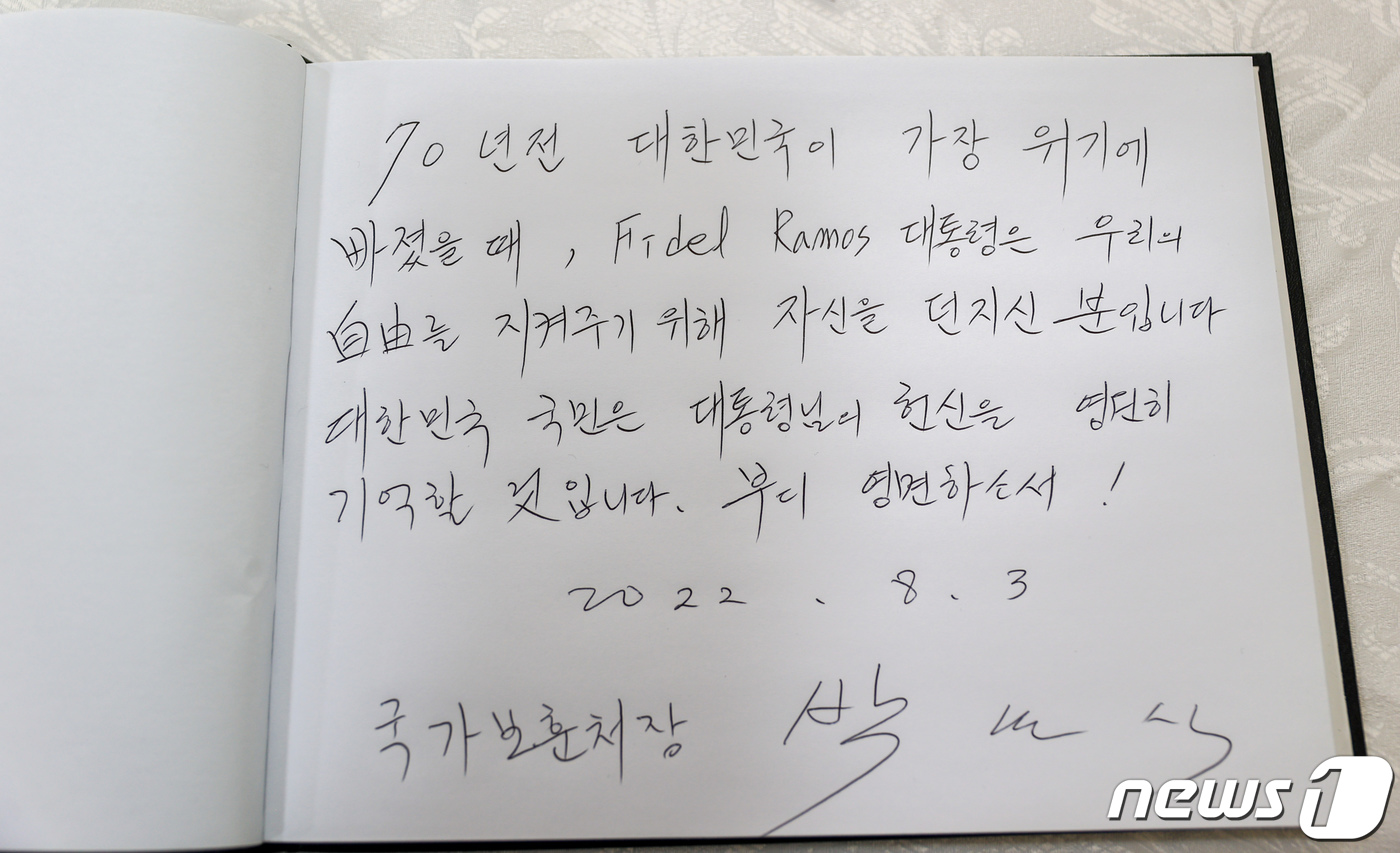 70년전 대한민국이 가장 위기에
빠졌을 때, Fidel Ramos 대통령은 우리의
自由를 지켜주기 위해 자신을 던지신 분입니다
대한민국 국민은 대통령님의 헌신을 영단히
기억할 것입니다. 부디 영면하소서!
2022. 8. 3
국가보훈처장 박
news1